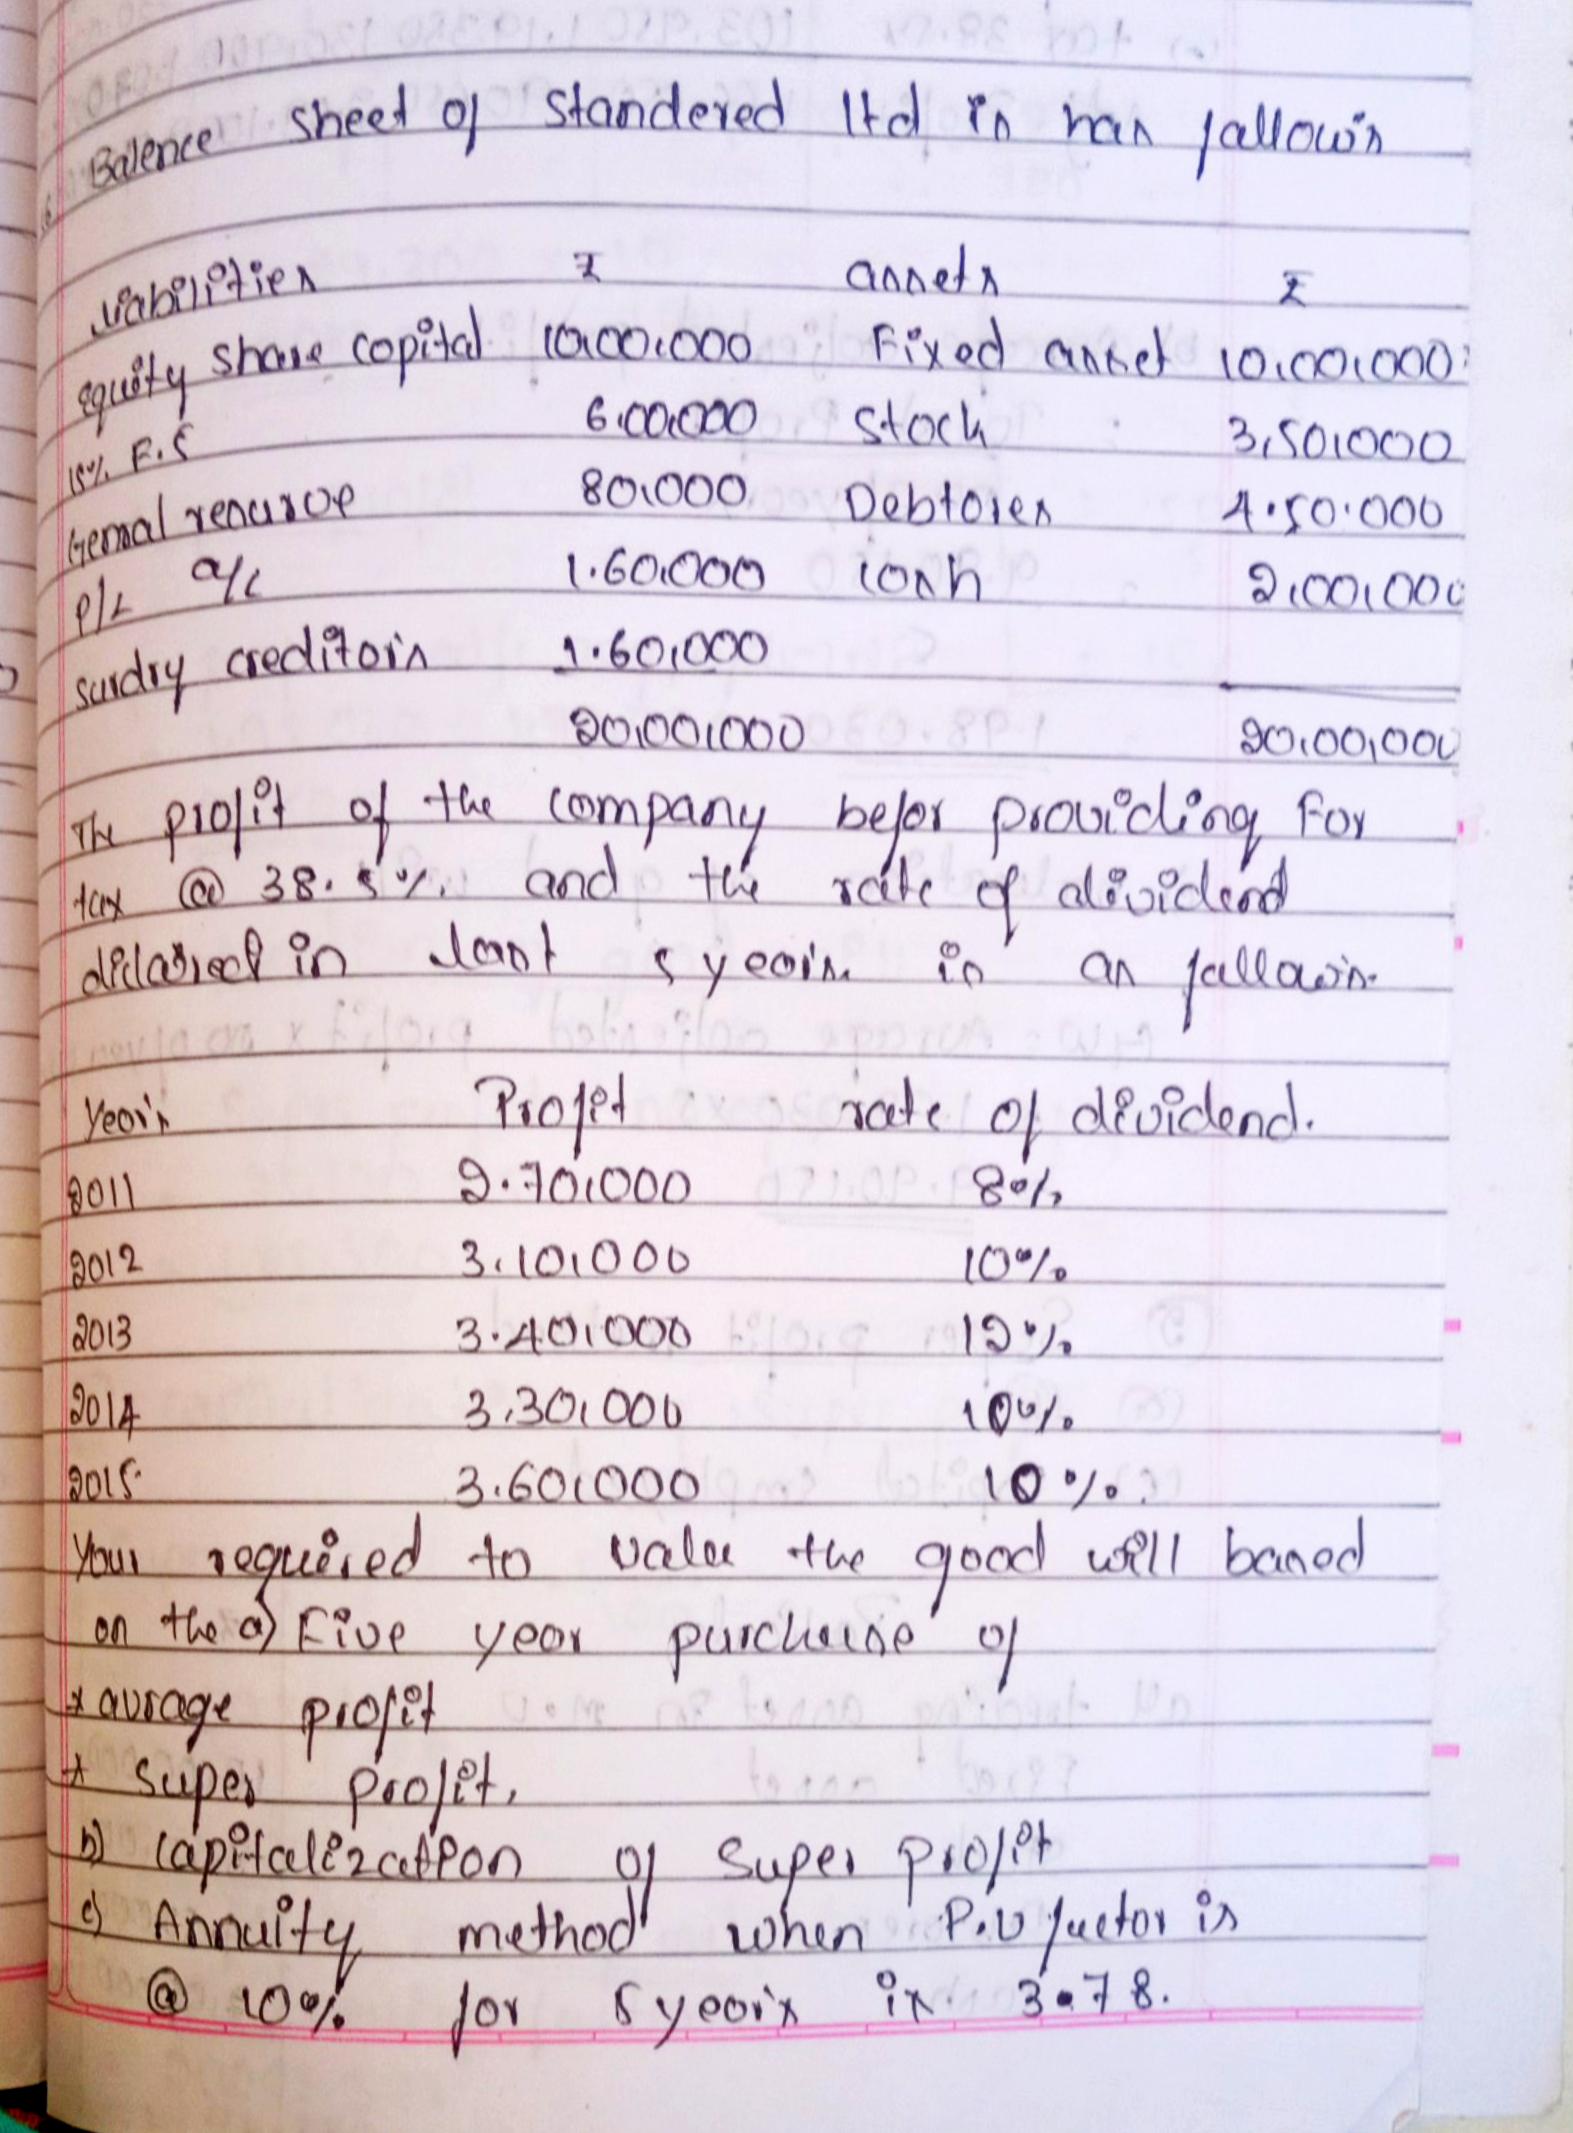 Balence sheet of standered ltd is has fallows
Liabilities ₹ assets ₹
equity share copital 10,00,000 Fixed asset 10,00,000
15% F.S 6,00,000 Stock 3,50,000
General resurve 80,000 Debtores 4.50.000
P/L a/c 1.60,000 cash 2,00,000
sundry creditors 1.60,000
20,00,000 20,00,000
The profit of the company befor providing For
tax @ 38.5% and the rate of dividend
dilasred in last 5 years is as fallows.
Years Profit rate of dividend.
2011 2.70,000 8%
2012 3,10,000 10%
2013 3.40,000 12%
2014 3,30,000 10%
2015 3.60,000 10%
Your required to value the good will based
on the a) Five year purchase of
* avrage profit
* Super Profit,
b) capitalization of Super profit
c) Annuity method when P.V factor is
@ 10% for 5 years is 3.78.